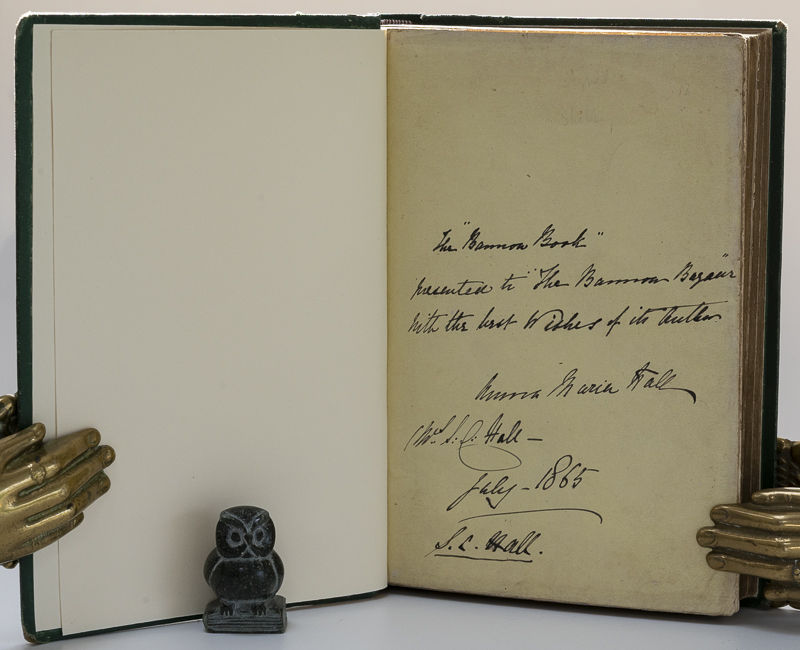 The "Bannow Book"
presented to "The Bannow Bazaar"
With the best Wishes of its Author
Anna Maria Hall
(Mrs. S. C. Hall —
July – 1865
S. C. Hall.